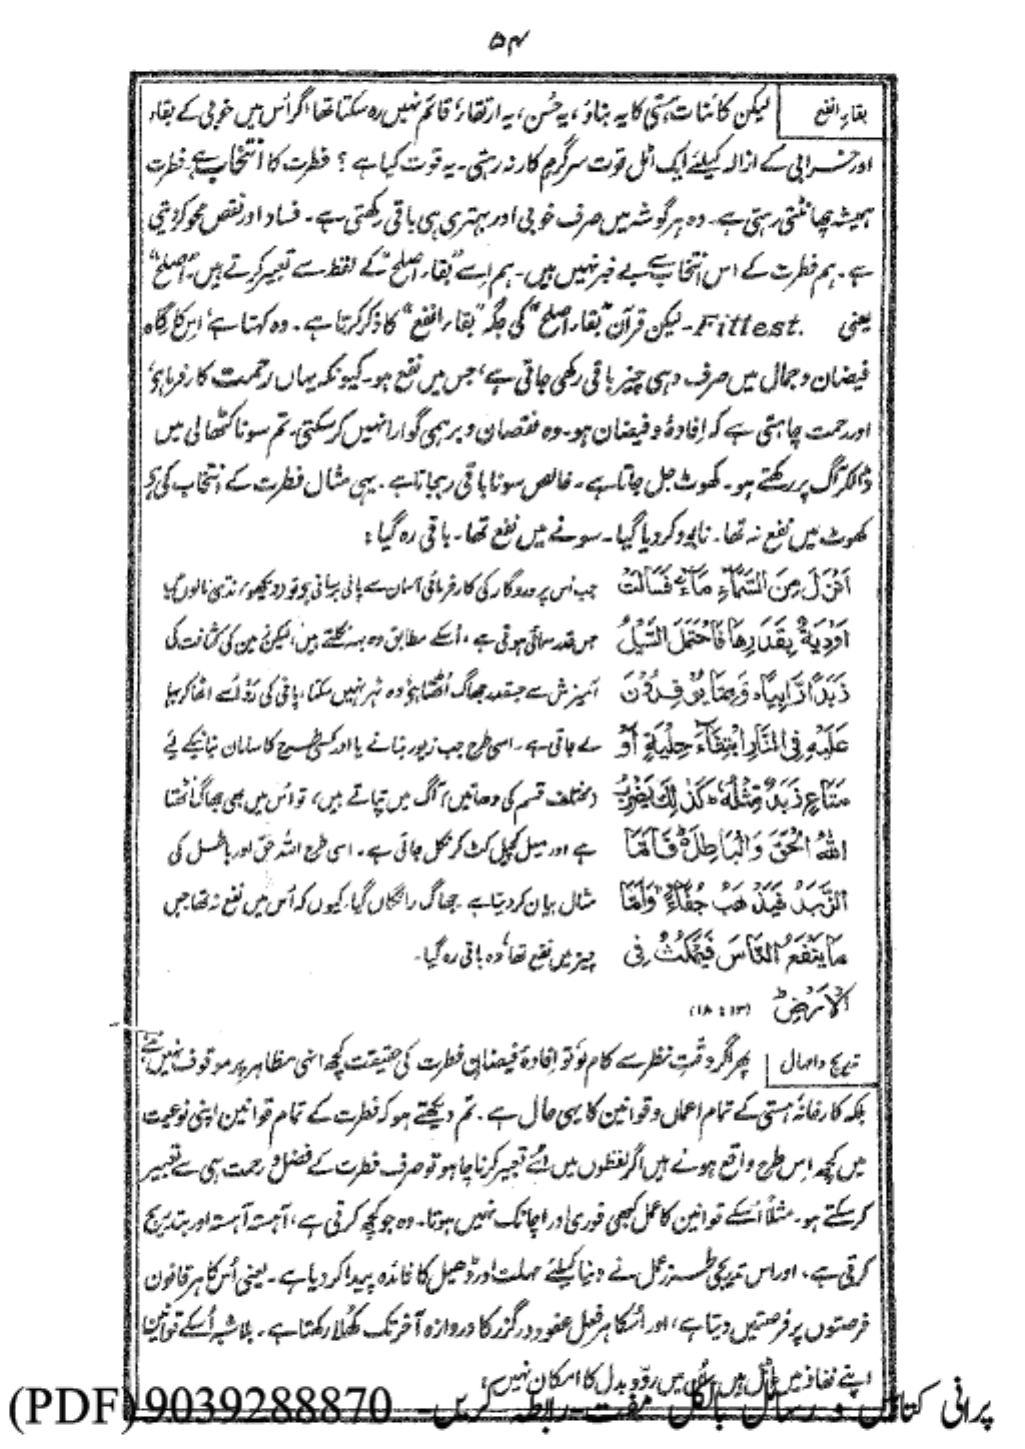 ۵۴
بقاءِ انفع
لیکن کائنات ہستی کا یہ بناؤ، یہ حُسن، یہ ارتقاء قائم نہیں رہ سکتا تھا اگر اُس میں خوبی کے بقاء
اور خرابی کے ازالہ کیلئے ایک اٹل قوت سرگرم کار نہ رہتی۔ یہ قوت کیا ہے؟ فطرت کا انتخاب ہے، فطرت
ہمیشہ چھانٹتی رہتی ہے۔ وہ ہر گوشہ میں صرف خوبی اور بہتری ہی باقی رکھتی ہے۔ فساد اور نقص محو کر دیتی
ہے۔ ہم فطرت کے اس انتخاب سے بے خبر نہیں ہیں۔ ہم اسے "بقاء اصلح" کے لفظ سے تعبیر کرتے ہیں۔ "اصلح"
یعنی Fittest.۔ لیکن قرآن "بقاء اصلح" کی جگہ "بقاء انفع" کا ذکر کرتا ہے۔ وہ کہتا ہے، اس کارگاہ
فیضان و جمال میں صرف وہی چیز باقی رکھی جاتی ہے، جس میں نفع ہو۔ کیونکہ یہاں رحمت کارفرما ہے،
اور رحمت چاہتی ہے کہ افادہ و فیضان ہو۔ وہ نقصان و برہمی گوارا نہیں کر سکتی۔ تم سونا کٹھالی میں
ڈالکر آگ پر رکھتے ہو۔ کھوٹ جل جاتا ہے۔ خالص سونا باقی رہجاتا ہے۔ یہی مثال فطرت کے انتخاب کی ہے
کھوٹ میں نفع نہ تھا۔ نابود کر دیا گیا۔ سونے میں نفع تھا۔ باقی رہ گیا:
اَنْزَلَ مِنَ السَّمَآءِ مَآءً فَسَالَتْ جب اُس پروردگار کی کارفرمائی آسمان سے پانی برساتی ہے تو (دیکھو) ندی نالوں میں
اَوْدِیَةٌ بِقَدَرِهَا فَاحْتَمَلَ السَّیْلُ جس قدر سمائی ہوتی ہے، اُسکے مطابق وہ بہہ نکلتے ہیں، لیکن زمین کی کثافت کی
زَبَدًا رَّابِیًا ؕ وَمِمَّا یُوْقِدُوْنَ آمیزش سے جسقدر جھاگ اُٹھتا ہے، وہ ٹہر نہیں سکتا، پانی کی رَو اُسے اٹھا کر بہا
عَلَیْهِ فِی النَّارِ ابْتِغَآءَ حِلْیَةٍ اَوْ لے جاتی ہے۔ اسی طرح جب زیور بنانے یا اور کسی طرح کا سامان بنانیکے لیے
مَتَاعٍ زَبَدٌ مِّثْلُهٗ ؕ كَذٰلِكَ یَضْرِبُ (مختلف قسم کی دھاتیں) آگ میں تپاتے ہیں، تو اُس میں بھی جھاگ اُٹھتا
اللّٰهُ الْحَقَّ وَالْبَاطِلَ ؕ فَاَمَّا ہے اور میل کچیل کٹ کر نکل جاتی ہے۔ اسی طرح اللہ حق اور باطل کی
الزَّبَدُ فَیَذْهَبُ جُفَآءً ۚ وَاَمَّا مثال بیان کر دیتا ہے جھاگ رائگاں گیا۔ کیوں کہ اُس میں نفع نہ تھا جس
مَا یَنْفَعُ النَّاسَ فَیَمْكُثُ فِی چیز میں نفع تھا، وہ باقی رہ گیا۔
الْاَرْضِ ؕ (۱۳: ۱۸)
تدریج و امہال
پھر اگر دقّتِ نظر سے کام لو تو افادہ فیضانِ فطرت کی حقیقت کچھ انہی مظاہر پر موقوف نہیں ہے،
بلکہ کارخانۂ ہستی کے تمام اعمال و قوانین کا یہی حال ہے۔ تم دیکھتے ہو کہ فطرت کے تمام قوانین اپنی نوعیت
میں کچھ اِس طرح واقع ہوئے ہیں اگر لفظوں میں اُنہیں تعبیر کرنا چاہو تو صرف فطرت کے فضل و رحمت ہی سے تعبیر
کر سکتے ہو۔ مثلاً اُسکے قوانین کا عمل کبھی فوری اور اچانک نہیں ہوتا۔ وہ جو کچھ کرتی ہے، آہستہ آہستہ اور بتدریج
کرتی ہے، اور اس تدریجی طرز عمل نے دنیا کیلئے مہلت اور ڈھیل کا فائدہ پیدا کر دیا ہے۔ یعنی اُس کا ہر قانون
فرصتوں پر فرصتیں دیتا ہے، اور اُسکا ہر فعل عفو و درگزر کا دروازہ آخر تک کھُلا رکھتا ہے۔ بلاشبہ اُسکے قوانین
اپنے نفاذ میں اٹل ہیں اُن میں ردّ و بدل کا امکان نہیں:
پرانی کتابیں و رسائل بالکل مفت۔ رابطہ کریں۔ 9039288870 (PDF)